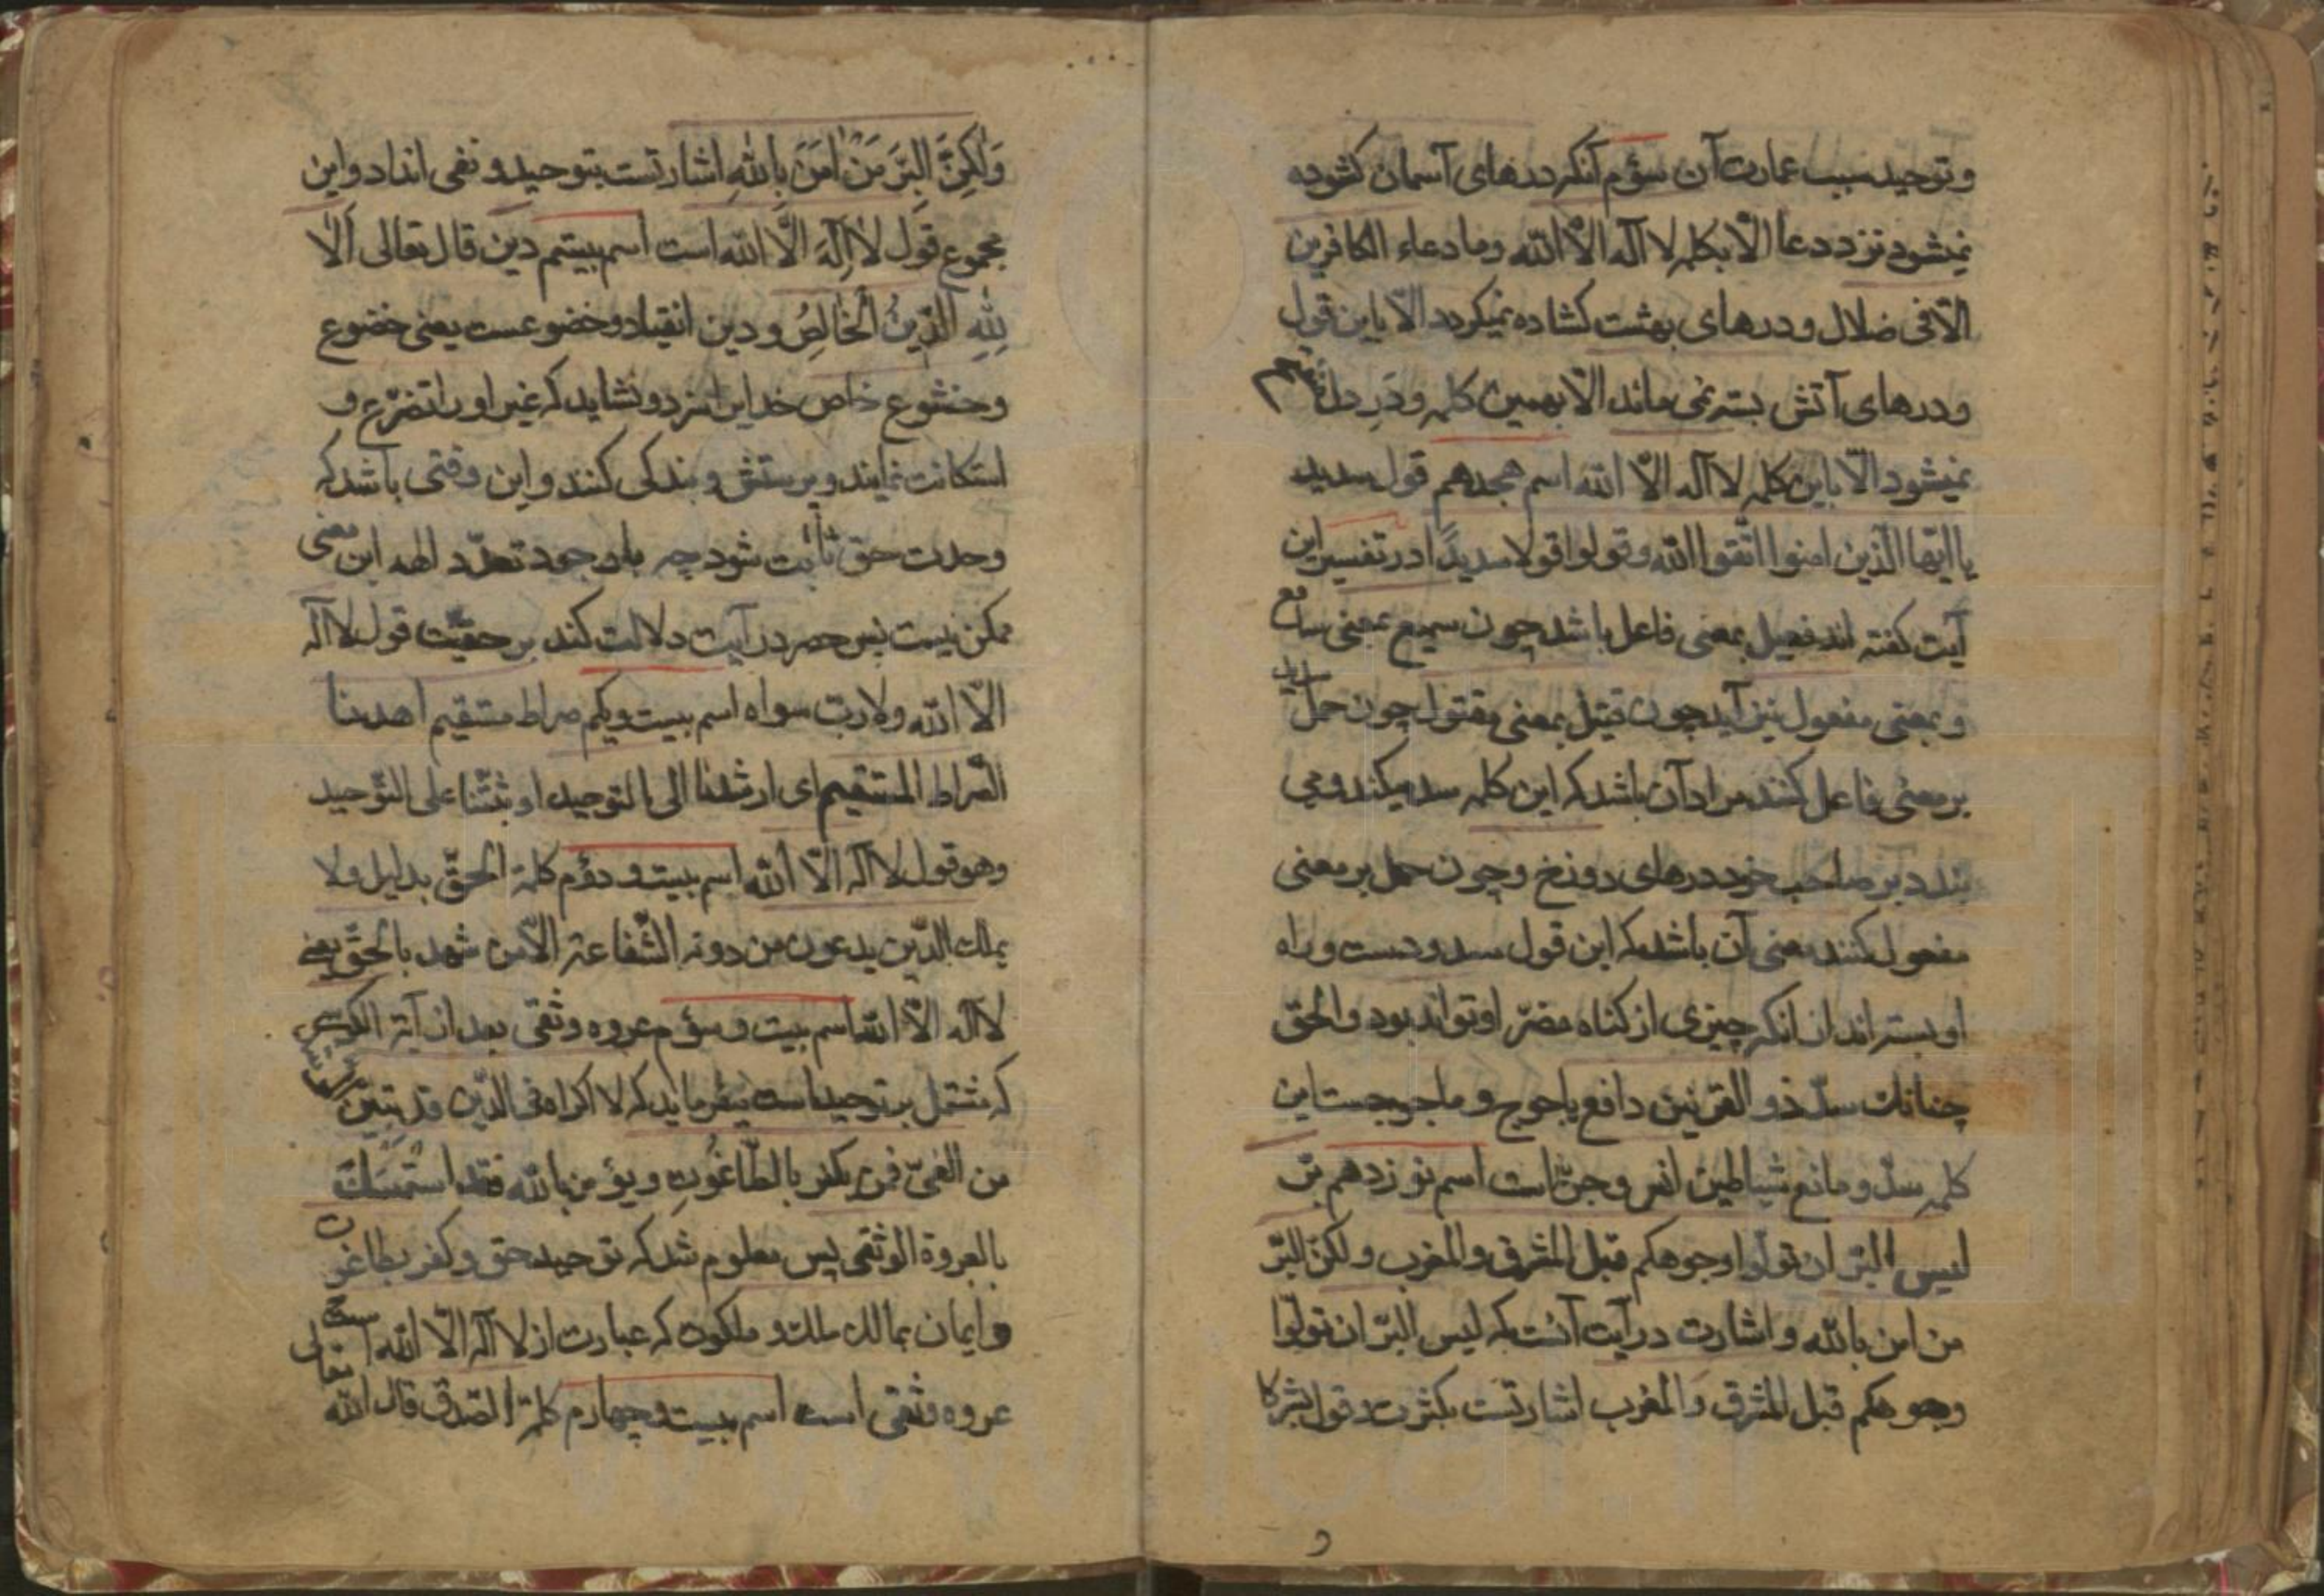 و توحید سبب عمارت آن سؤم آنکه درهای آسمان کشوده
نمیشود نزد دعا الّا بکلمه لا اله الّا الله وما دعاء الکافرین
الّا فی ضلال و درهای بهشت کشاده نمیکردد الّا باین قول
و درهای آتش بسته نمی ماند الّا بهمین کلمه و دَرِ دل
نمیشود الّا باین کلمه لا اله الّا الله اسم هجدهم قول سدید
یا ایّها الّذین امنوا اتّقوا الله وقولوا قولا سدیدًا در تفسیر این
آیت کفته اند فعیل بمعنی فاعل باشد چون سمیع بمعنی سامع
و بمعنی مفعول نیز آید چون قتیل بمعنی مقتول چون حمل
بر معنی فاعل کنند مراد آن باشد که این کلمه سد میکند و می
بندد بر صاحب خود درهای دوزخ و چون حمل بر معنی
مفعول کنند معنی آن باشد که این قول سدود است و راه
او بسته اند از آنکه چیزی از کناه مضرّ او تواند بود والحق
چنانك سدّ ذو القرنین دافع یاجوج و ماجوجست این
کلمه سدّ و مانع شیاطین انس و جنّ است اسم نوزدهم برّ
لیس البرّ ان تولّوا وجوهکم قبل المشرق والمغرب ولکنّ البرّ
من امن بالله و اشارت در آیت آنست که لیس البرّ ان تولّوا
وجوهکم قبل المشرق وَالمغرب اشارتست بکثرت و قول بشرکا
وَلٰکِنَّ البِرَّ مَنْ اٰمَنَ بِاللهِ اشارتست بتوحید و نفی انداد و این
مجموع قول لا اِلٰهَ الَّا الله است اسم بیستم دین قال تعالی اَلا
لِلهِ الدّینُ الخالِصُ و دین انقیاد و خضوعست یعنی خضوع
و خشوع خاص خدایرا سزد و نشاید که غیر او را تضرّع و
استکانت نمایند و پرستش و بندکی کنند و این وقتی باشد که
وحدت حق ثابت شود چه باوجود تعدّد الهه این معنی
ممکن نیست پس حصر در آیت دلالت کند بر حقیّت قول لا اله
الّا الله ولا ربّ سواه اسم بیست ویکم صراط مستقیم اهدنا
الصّراط المستقیم ای ارشدنا الی التوحید او ثبّتنا علی التّوحید
وهو قول لا اله الّا الله اسم بیست و دوّم کلمة الحقّ بدلیل ولا
یملك الذّین یدعون من دونه الشّفاعة الّا من شهد بالحقّ یعنی
لا اله الّا الله اسم بیست و سؤم عروه وثقی بعد از آیة الکرسی
که مشتمل بر توحید است میفرماید که لا اکراه فی الدّین قد تبیّن الرشد
من الغیّ فمن یکفر بالطّاغُوتِ و یؤمن بالله فقد استَمسَكَ
بالعروة الوثقی پس معلوم شد که توحید حق و کفر بطاغوت
و ایمان بمالك ملك و ملکوت که عبارت از لا اله الّا الله است
عروه وثقی است اسم بیست و چهارم کلمة الصّدق قال الله تعالی